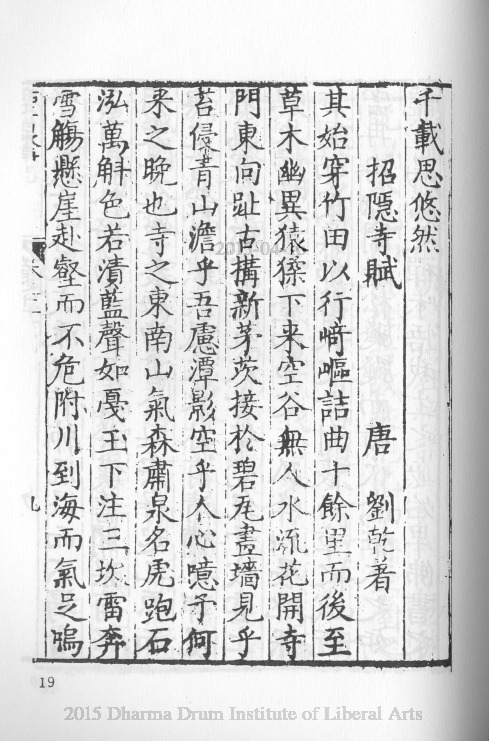 千載思悠然
招隱寺賦 唐 劉乾著
其始穿竹田以行﨑嶇詰曲十餘里而後至
草木幽異猿猱下来空谷無人水流花開寺
門東向趾古搆新茅茨接於碧瓦畫墻見乎
苔侵青山澹乎吾慮潭影空乎人心噫予何
来之晚也寺之東南山氣森肅泉名虎跑石
泓萬斛色若漬藍聲如戞玉下注三坎雷奔
雪觴懸崖赴壑而不危附川到海而氣足嗚
九
19
2015 Dharma Drum Institute of Liberal Arts